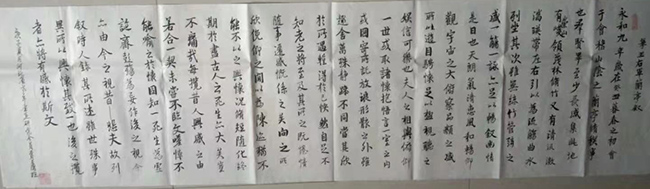 王右軍蘭亭叙
永和九年歲在癸丑暮春之初會
于會稽山陰之蘭亭修稧事
也群賢畢至少長咸集此地
有崇山峻領茂林脩竹又有清流激
湍暎帶左右引以為流觴曲水
列坐其次雖無絲竹管弦之
盛一觴一詠亦足以暢叙幽情
是日也天朗氣清惠風和暢仰
觀宇宙之大俯察品類之盛
所以遊目騁懷足以極視聽之
娛信可樂也夫人之相與俯仰
一世或取諸懷抱悟言一室之內
或因寄所託放浪形骸之外雖
趣舍萬殊靜躁不同當其欣
於所遇暫得於己怏然自足不
知老之將至及其所之既惓情
隨事遷感慨係之矣向之所
欣俛仰之間以為陳迹猶不
能不以之興懷況脩短隨化終
期於盡古人云死生亦大矣豈
不痛哉每攬昔人興感之由
若合一契未嘗不臨文嗟悼不
能喻之於懷固知一死生為虛
誕齊彭殤為妄作後之視今
亦由今之視昔悲夫故列
叙時人錄其所述雖世殊事
異所以興懷其致一也後之攬
者亦將有感於斯文